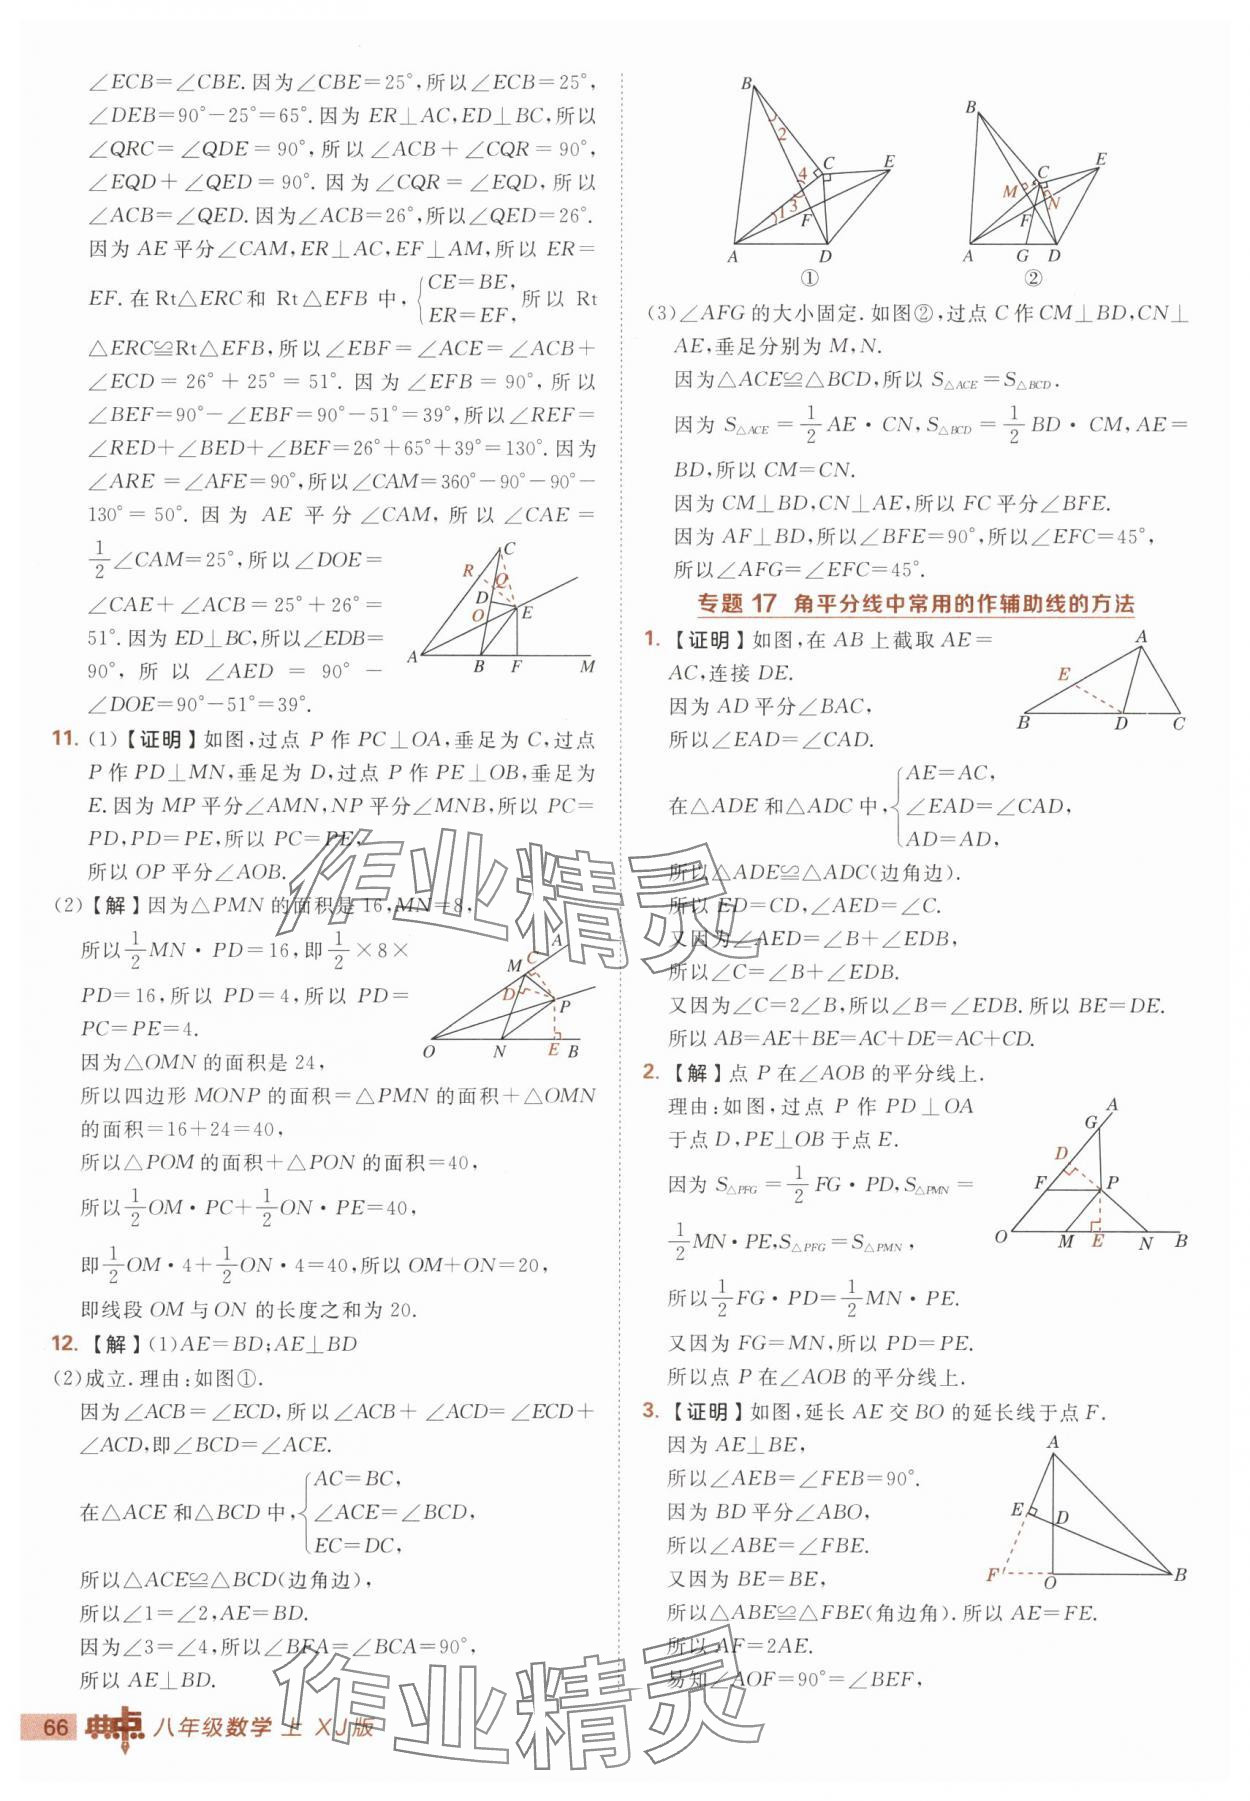 ∠ECB=∠CBE.因为∠CBE=25°,所以∠ECB=25°,
∠DEB=90°-25°=65°.因为 ER⊥AC,ED⊥BC,所以
∠QRC=∠QDE=90°,所以∠ACB+∠CQR=90°,
∠EQD+∠QED=90°.因为∠CQR=∠EQD,所以
∠ACB=∠QED.因为∠ACB=26°,所以∠QED=26°.
因为 AE 平分∠CAM,ER⊥AC,EF⊥AM,所以 ER=
EF.在Rt△ERC和 Rt△EFB 中,{CE=BE, ER=EF,所以 Rt
△ERC≌Rt△EFB,所以∠EBF=∠ACE=∠ACB+
∠ECD=26°+25°=51°.因为∠EFB=90°,所以
∠BEF=90°-∠EBF=90°-51°=39°,所以∠REF=
∠RED+∠BED+∠BEF=26°+65°+39°=130°.因为
∠ARE=∠AFE=90°,所以∠CAM=360°-90°-90°-
130°=50°.因为 AE 平分∠CAM,所以∠CAE=
1/2∠CAM=25°,所以∠DOE=
∠CAE+∠ACB=25°+26°=
51°.因为ED⊥BC,所以∠EDB=
90°,所以∠AED=90°-
∠DOE=90°-51°=39°.
C
R
Q
D
O
E
A
B
F
M
11.(1)【证明】如图,过点 P 作 PC⊥OA,垂足为 C,过点
P 作 PD⊥MN,垂足为 D,过点 P 作 PE⊥OB,垂足为
E.因为 MP平分∠AMN,NP平分∠MNB,所以 PC=
PD,PD=PE,所以 PC=PE,
所以 OP 平分∠AOB.
(2)【解】因为△PMN 的面积是 16,MN=8,
所以1/2MN·PD=16,即1/2×8×
PD=16,所以 PD=4,所以 PD=
PC=PE=4.
因为△OMN 的面积是 24,
A
C
M
D
P
O
N
E
B
所以四边形 MONP 的面积=△PMN 的面积+△OMN
的面积=16+24=40,
所以△POM 的面积+△PON 的面积=40,
所以1/2OM·PC+1/2ON·PE=40,
即1/2OM·4+1/2ON·4=40,所以 OM+ON=20,
即线段 OM 与 ON 的长度之和为 20.
12.【解】(1)AE=BD;AE⊥BD
(2)成立.理由:如图①.
因为∠ACB=∠ECD,所以∠ACB+∠ACD=∠ECD+
∠ACD,即∠BCD=∠ACE.
在△ACE 和△BCD 中,{AC=BC, ∠ACE=∠BCD, EC=DC,
所以△ACE≌△BCD(边角边),
所以∠1=∠2,AE=BD.
因为∠3=∠4,所以∠BFA=∠BCA=90°,
所以 AE⊥BD.
66 典中点 八年级数学 上 XJ版
B
2
4
C
E
1
3
F
A
D
①
B
C
E
M
N
F
A
G
D
②
(3)∠AFG 的大小固定.如图②,过点 C 作 CM⊥BD,CN⊥
AE,垂足分别为 M,N.
因为△ACE≌△BCD,所以 S△ACE=S△BCD.
因为 S△ACE=1/2AE·CN,S△BCD=1/2BD·CM,AE=
BD,所以 CM=CN.
因为 CM⊥BD,CN⊥AE,所以 FC 平分∠BFE.
因为 AF⊥BD,所以∠BFE=90°,所以∠EFC=45°,
所以∠AFG=∠EFC=45°.
专题 17 角平分线中常用的作辅助线的方法
1.【证明】如图,在 AB 上截取 AE=
AC,连接 DE.
因为 AD平分∠BAC,
所以∠EAD=∠CAD.
A
E
B
D
C
在△ADE 和△ADC 中,{AE=AC, ∠EAD=∠CAD, AD=AD,
所以△ADE≌△ADC(边角边).
所以 ED=CD,∠AED=∠C.
又因为∠AED=∠B+∠EDB,
所以∠C=∠B+∠EDB.
又因为∠C=2∠B,所以∠B=∠EDB.所以 BE=DE.
所以 AB=AE+BE=AC+DE=AC+CD.
2.【解】点 P 在∠AOB 的平分线上.
理由:如图,过点 P 作 PD⊥OA
于点 D,PE⊥OB 于点 E.
因为 S△PFG=1/2FG·PD,S△PMN=
1/2MN·PE,S△PFG=S△PMN,
所以1/2FG·PD=1/2MN·PE.
又因为 FG=MN,所以 PD=PE.
所以点 P 在∠AOB 的平分线上.
A
G
D
F
P
O
M
E
N
B
3.【证明】如图,延长 AE 交 BO 的延长线于点 F.
因为 AE⊥BE,
所以∠AEB=∠FEB=90°.
因为 BD平分∠ABO,
所以∠ABE=∠FBE.
又因为 BE=BE,
所以△ABE≌△FBE(角边角).所以 AE=FE.
所以 AF=2AE.
易知∠AOF=90°=∠BEF,
A
E
D
F
O
B
作业精灵
作业精灵